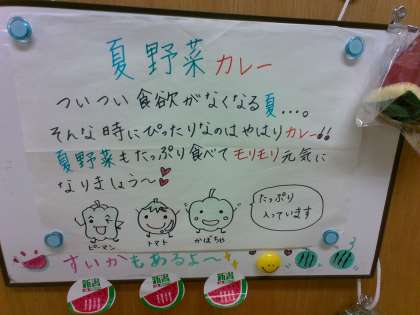 夏野菜カレー
ついつい食欲がなくなる夏…。
そんな時にぴったりなのはやはりカレー!!
夏野菜もたっぷり食べてモリモリ元気に
なりましょう〜
たっぷり
入っています
ピーマン
トマト
かぼちゃ
すいかもあるよ〜
新書
新書
新書